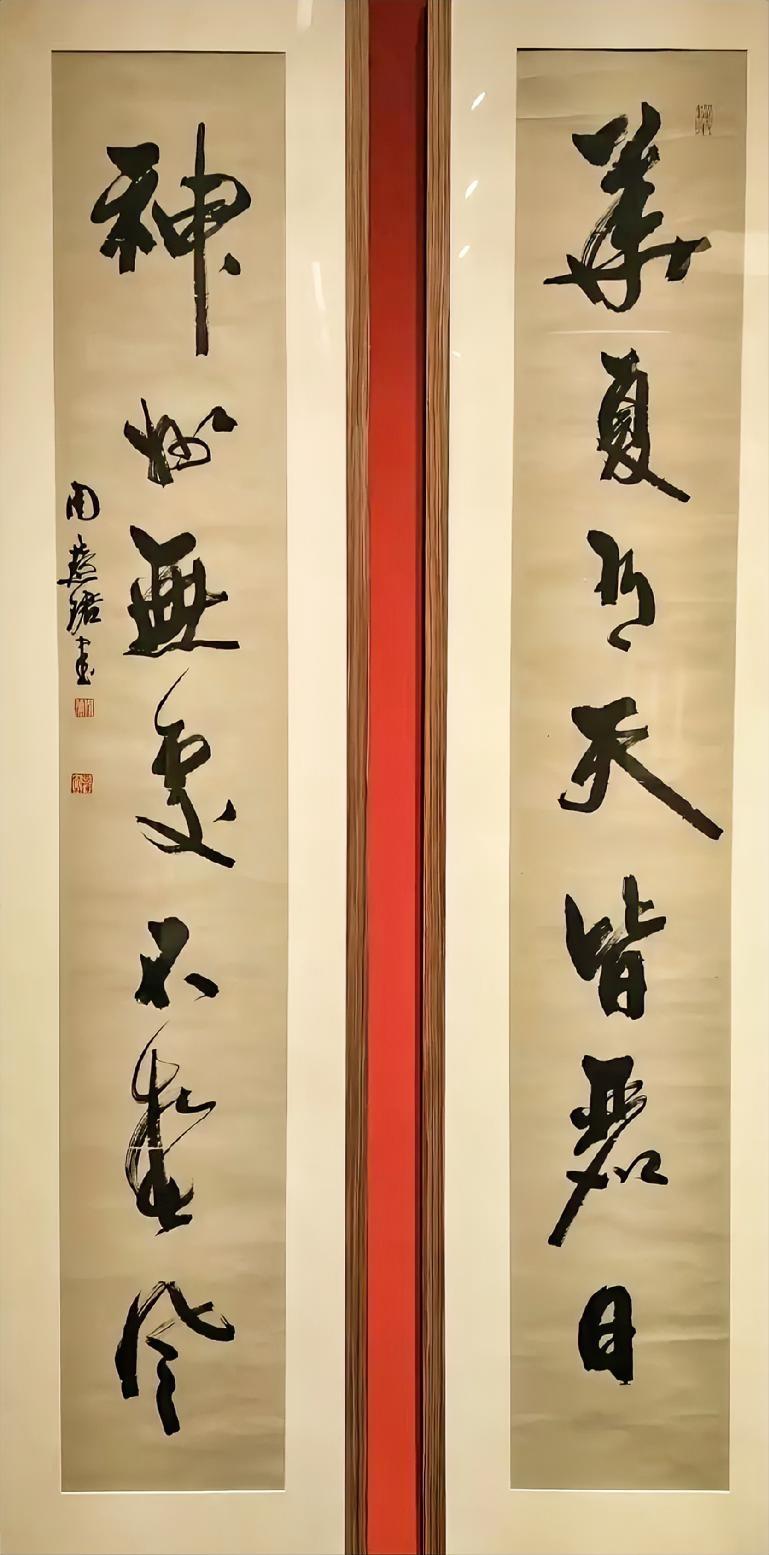 華夏有天皆麗日
神州無處不春風
周慧珺書